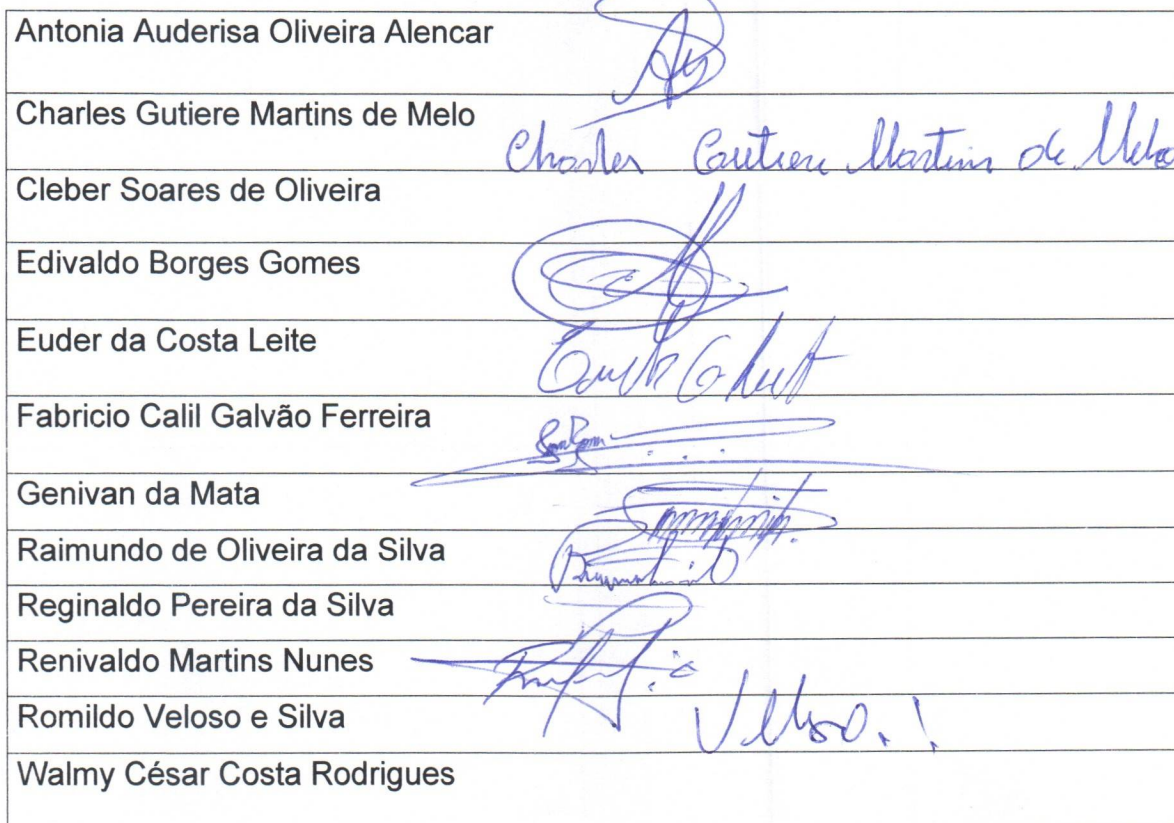 Antonia Auderisa Oliveira Alencar
Charles Gutiere Martins de Melo
Charles Gutiere Martins de Melo
Cleber Soares de Oliveira
Edivaldo Borges Gomes
Euder da Costa Leite
Fabricio Calil Galvão Ferreira
Genivan da Mata
Raimundo de Oliveira da Silva
Reginaldo Pereira da Silva
Renivaldo Martins Nunes
Romildo Veloso e Silva
Veloso.!
Walmy César Costa Rodrigues